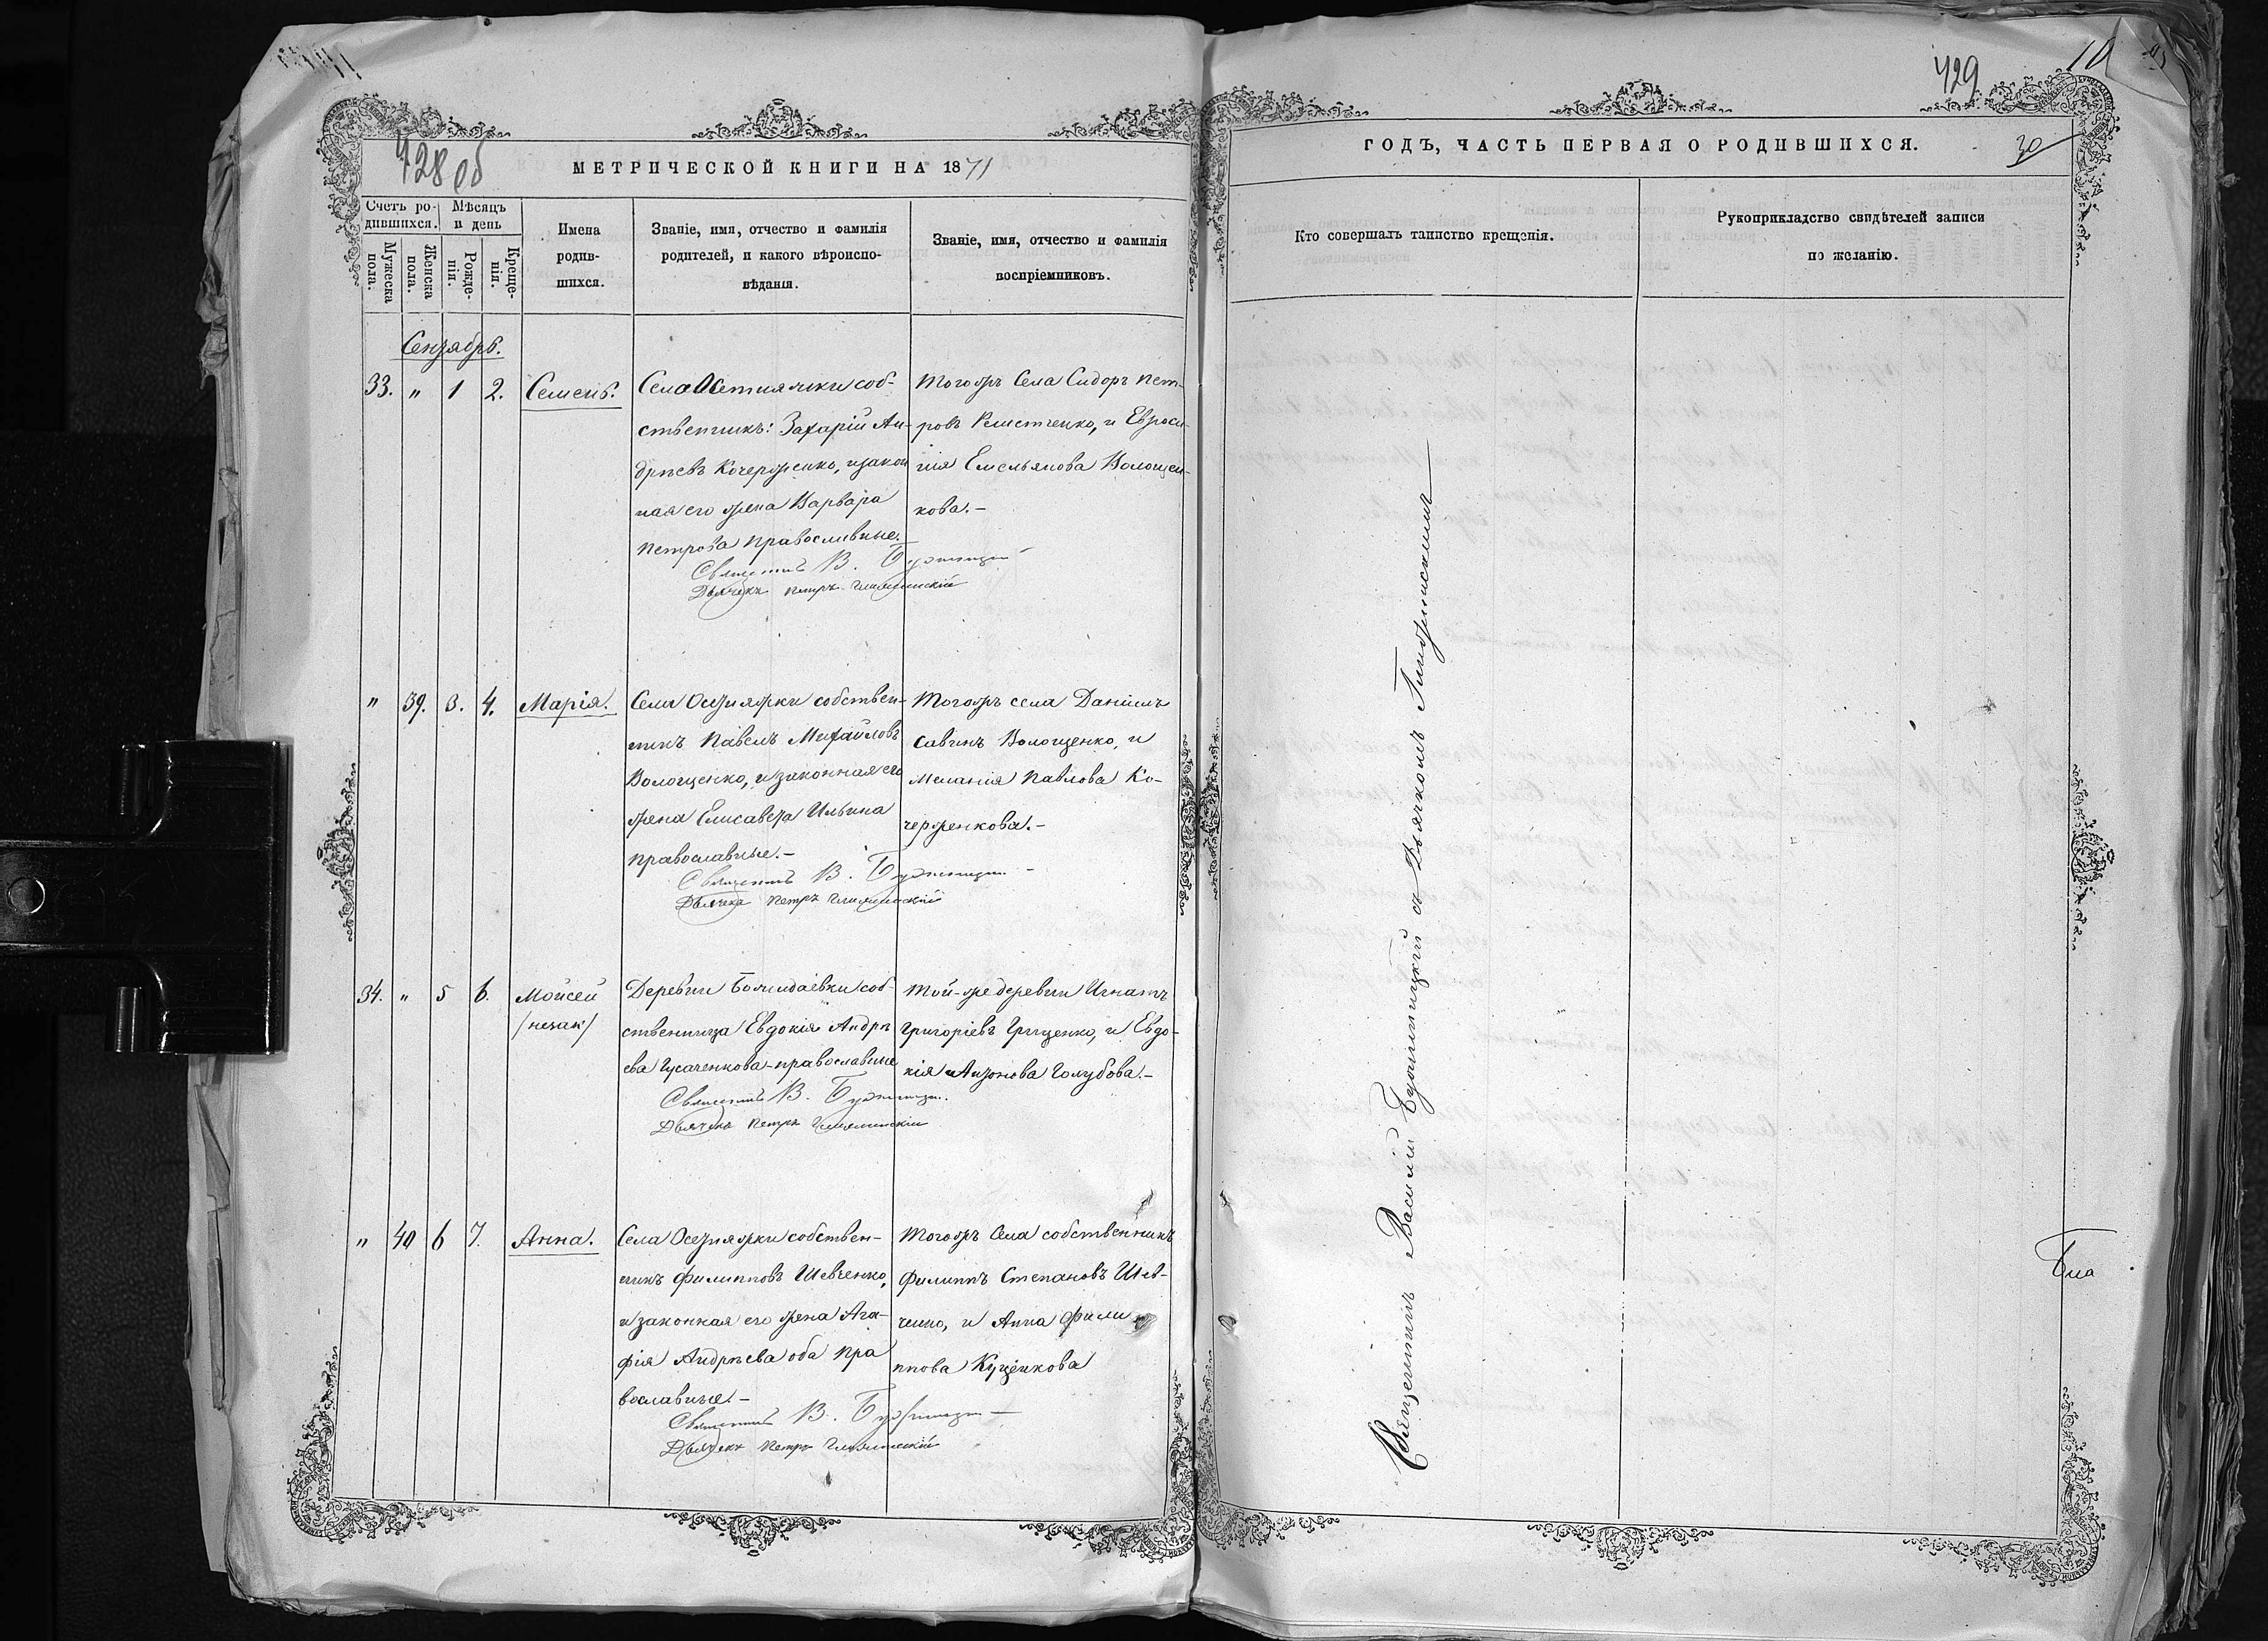 428 об
МЕТРИЧЕСКОЙ КНИГИ НА 1871
Счетъ ро-
дившихся.
Мѣсяцъ
и день
Мужеска
пола.
Женска
пола.
Рожде-
нія.
Креще-
нія.
Имена
родив-
шихся.
Званіе, имя, отчество и фамилія
родителей, и какого вѣроиспо-
вѣданія.
Званіе, имя, отчество и фамилія
воспріемниковъ.
Сентябрь.
33. " 1 2. Семенъ.
Села
соб-
ственникъ: Захарій Ан-
дрѣевъ Кочерженко, и закон
ная его жена Варвара
Петрова православные.
Священникъ В.
Дьячекъ Петръ
Тогожъ Села Сидоръ Пет-
ровъ Решетченко, и Евроси-
нія Емельянова Волощен-
кова.-
" 39. 3. 4. Марія.
Села Осетняжки собствен-
никъ Павелъ Михайловъ
Волощенко, и законная его
жена Елисавета Ильина
православные.-
Священникъ В.
Дьячекъ Петръ
Тогожъ села Даніилъ
Савинъ Волощенко, и
Меланія Павлова Ко-
черженкова.-
34. " 5 6. Моисей
/незак/
Деревни
соб-
ственница Евдокія Андрѣ
ева Гусаченкова-православные
Священникъ В.
Дьячекъ Петръ
Той-же деревни Игнатъ
Григоріевъ Грищенко, и Евдо-
кія Антонова Голубова.-
" 40 6 7. Анна.
Села Осетняжки собствен-
никъ Филипповъ Шевченко,
и законная его жена Ага-
фія Андрѣева оба пра
вославные.-
Священникъ В.
Дьячекъ Петръ
Тогожъ Села собственникъ
Филиппъ Степановъ Шев-
ченко, и Анна Фили
ппова Куценкова
429
10
30
ГОДЪ, ЧАСТЬ ПЕРВАЯ О РОДИВШИХСЯ.
Кто совершалъ таинство крещенія.
Рукоприкладство свидѣтелей записи
по желанію.
Священникъ Василій
съ Дьячкомъ